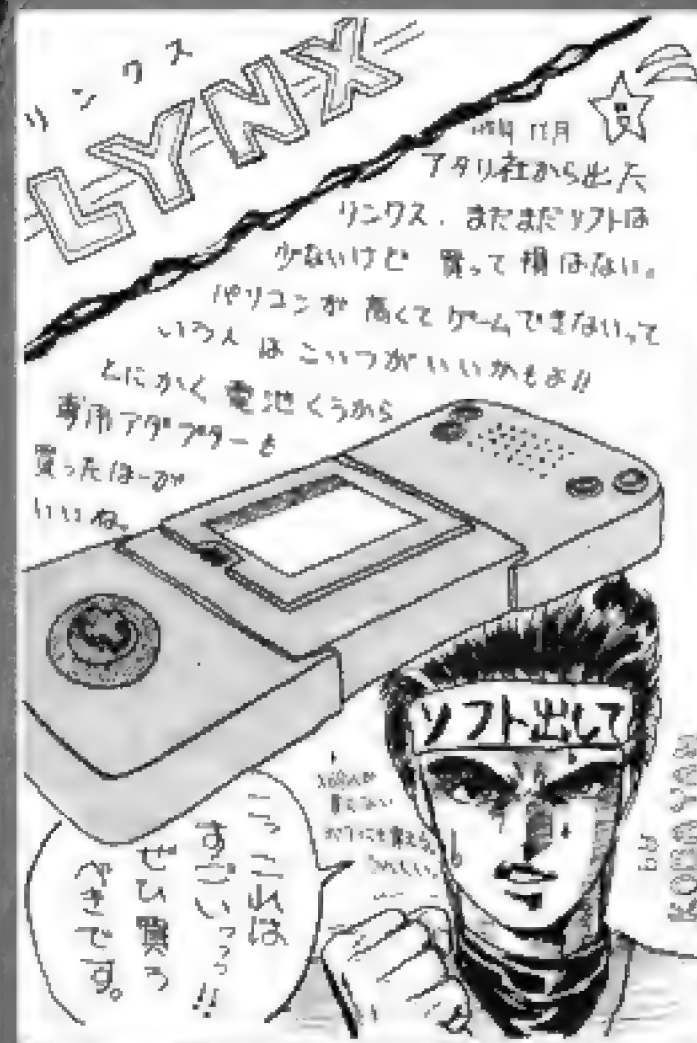 リンクス
LYNX
買
月
アタリ社から出た
リンクス．まだまだソフトは
少ないけど 買って損はない。
パソコンが高くてゲームできないって
いう人はこいつがいいかもよ!!
とにかく電池くうから
専用アダプターも
買ったほーが
いいね。
ソフト出して
こっこれは
すごいっっ!!
ぜひ買う
べきです。
買えない
by
KOBAYAN